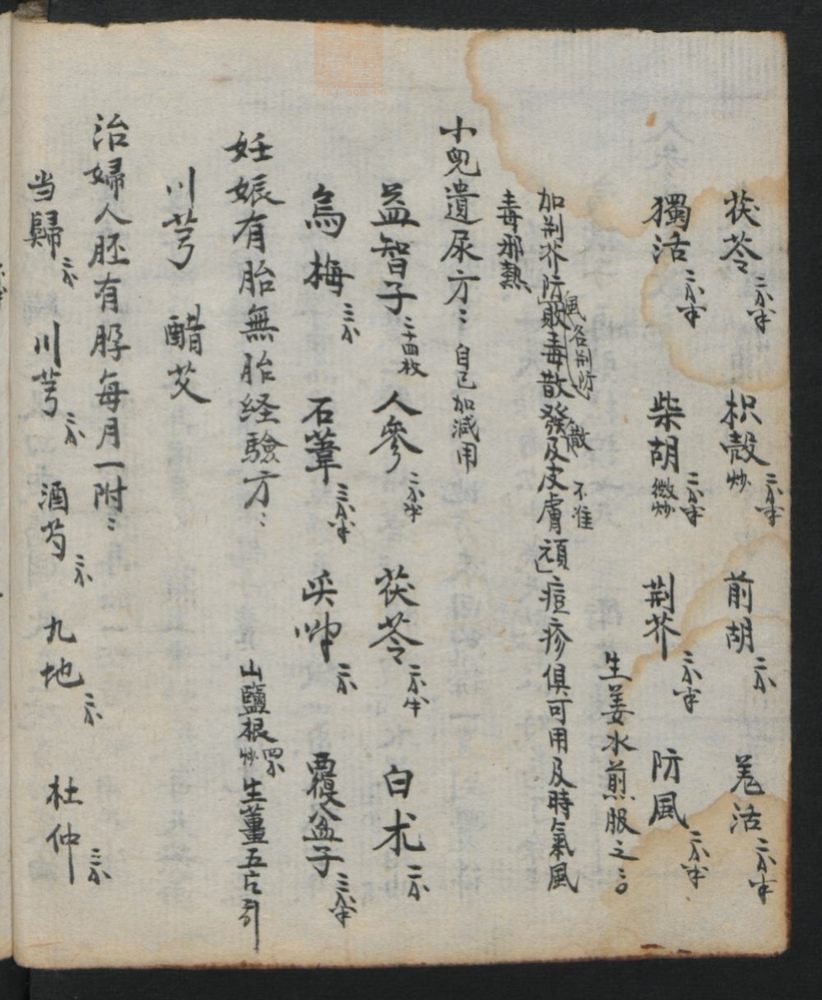 茯苓 二分半 枳殼 炒 二分半 前胡 二分 羌活 二分半
獨活 二分半 柴胡 微炒 二分半 荊芥 二分半 防風 二分半
生姜水煎服之
加荊芥防風名荊防敗毒散發散及皮膚不准頑痘疹俱可用及時氣風
毒邪熱
小兒遺尿方 自己加減用
益智子 二十四枚 人參 二分半 茯苓 二分半 白朮 二分
烏梅 三分 石葦 二分半 二分 覆盆子 二分半
山鹽根 炒 四分 生薑五片引
妊娠有胎無胎経驗方
川芎 醋艾
治婦人胚有脬每月一附
当歸 二分 川芎 二分 酒芍 二分 九地 二分 杜仲 二分